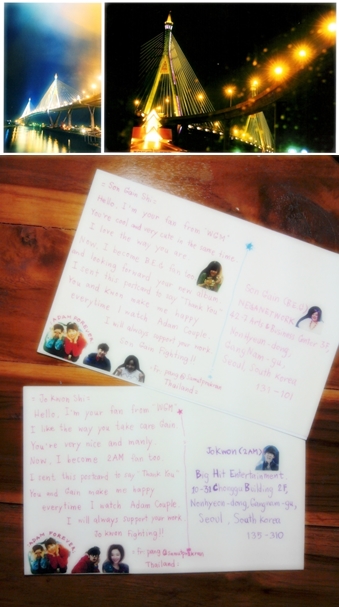 : Son Gain Shi :
Hello, I'm your fan from "WGM"
You're cool and very cute in the same time
I love the way you are
Now, I become B.E.G fan too
and looking forward your new album
I sent this postcard to say "Thank You"
You and Kwon make me happy
everytime I watch Adam Couple
I will always support your work
Son Gain Fighting!!
Fr. pang
Thailand :
ADAM FOREVER
Son Gain (B.E.G)
Seoul, South Korea
135-301
: Jo kwon Shi :
Hello, I'm your fan from "WGM"
I like the way you take care Gain.
You're very nice and manly.
Now, I become 2AM fan too.
I sent this postcard to say "Thank You"
You and Gain make me happy
everytime I watch Adam Couple
I will always support your work
Jo kwon Fighting!!
Fr. pang
Thailand :
ADAM FOREVER
JoKwon (2AM)
Big Hit Entertainment
10-31 Chonggu Building 2F,
Nonhyeon-dong, Gangnam-gu,
Seoul, South Korea
135-010